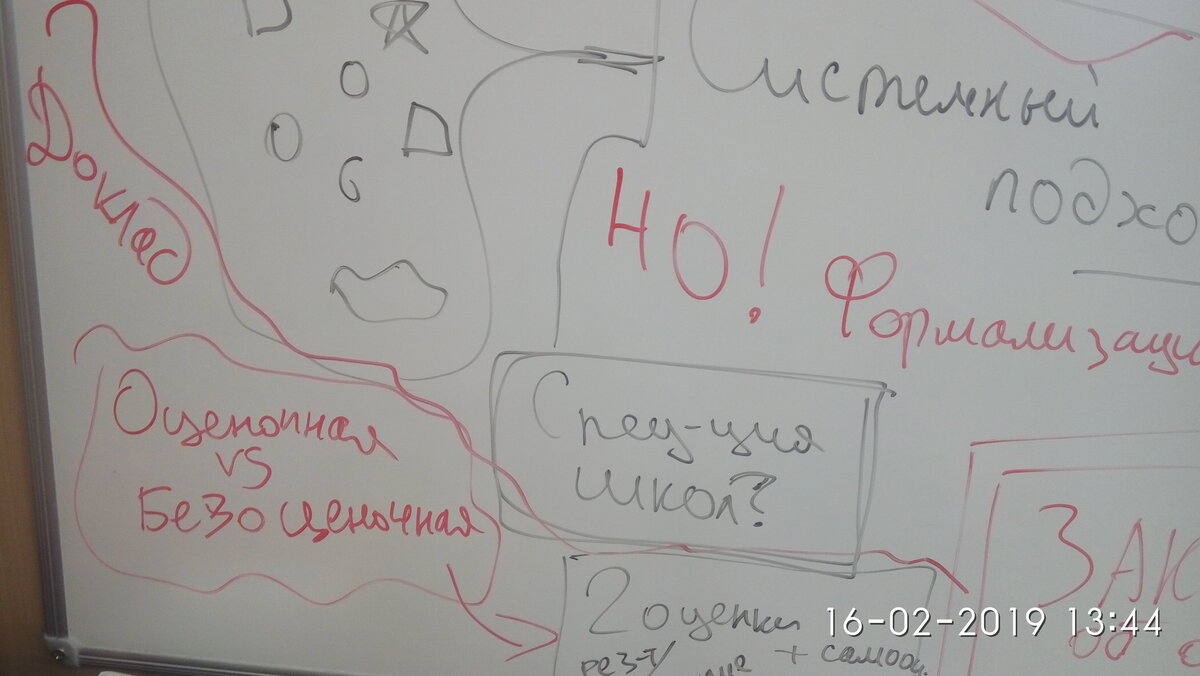 Доклад
Системный
подхо
НО!
Формализаци
Оценочная
vs
Безоценочная
Спец-ция
школ?
2 оценки
рез-т/
+ самооц.
ЗАК
16-02-2019 13:44